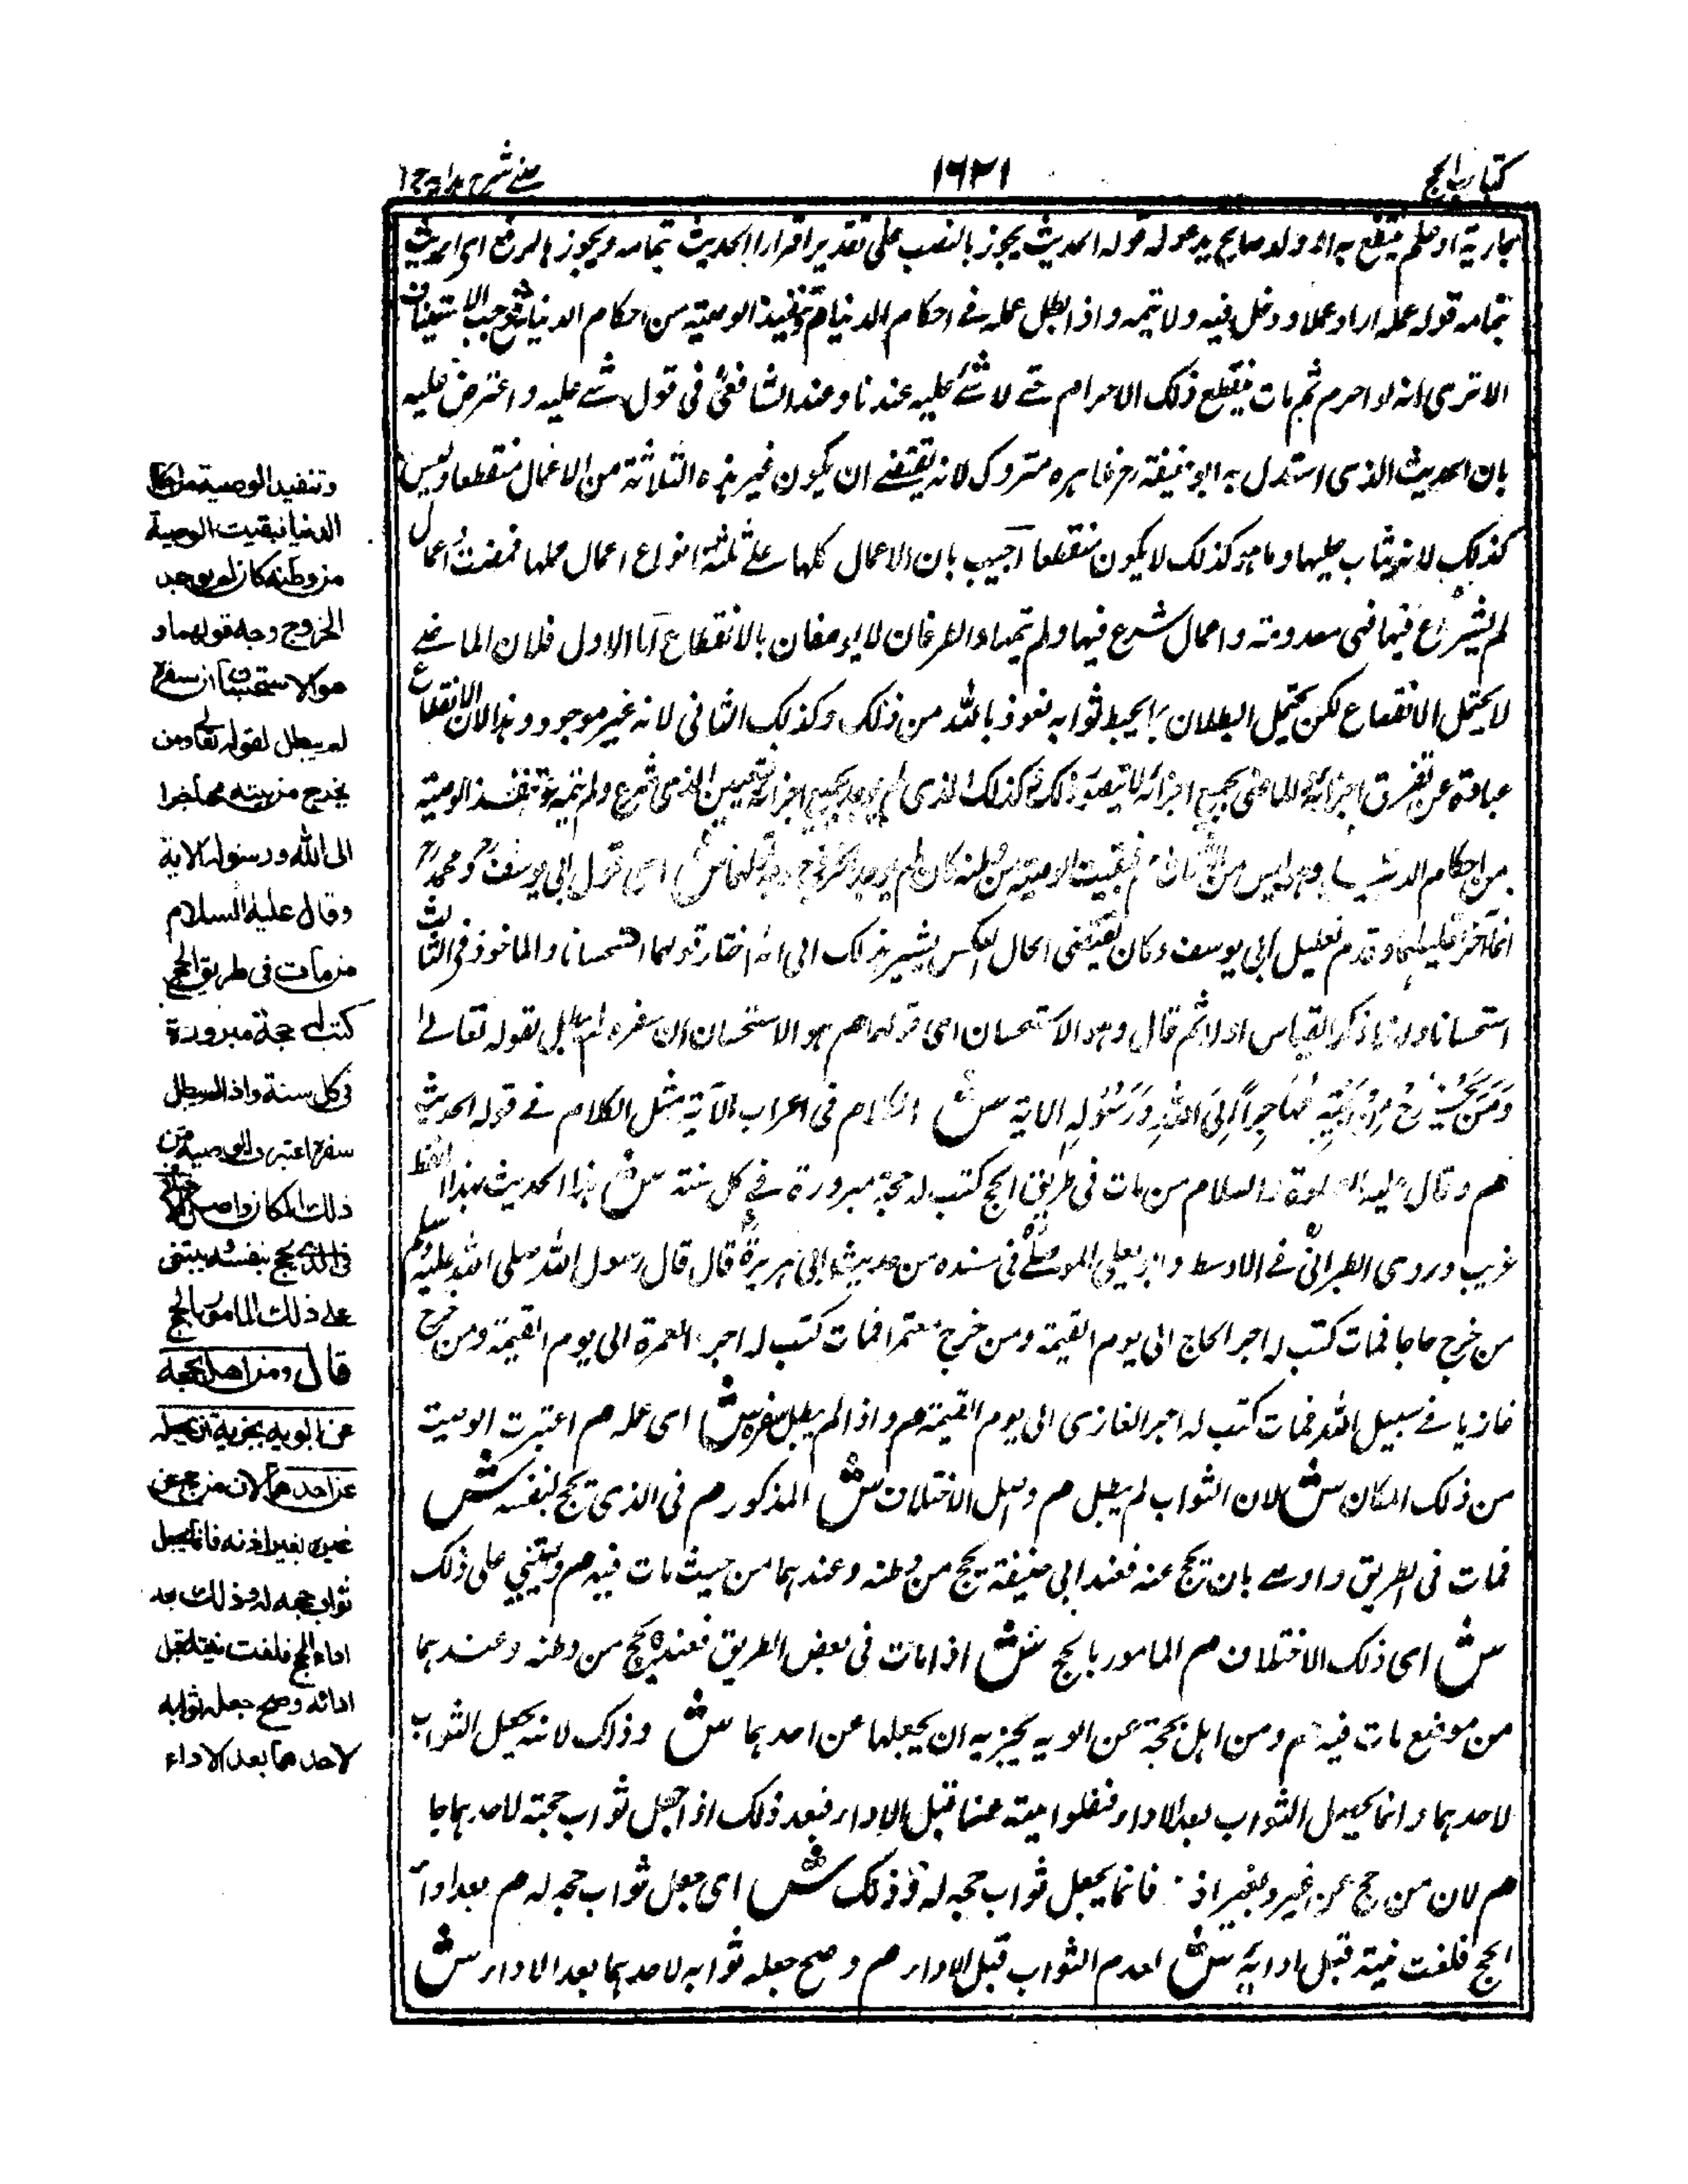 كتاب الحج
١٦٢١
عينى شرح هداية ج ١
جارية او علم ينتفع به او ولد صالح يدعو له قوله الحديث يجوز بالنصب على تقدير اقرأ الحديث بتمامه ويجوز بالرفع اى الحديث
بتمامه قوله عمله اراد عملا ودخل فيه ولا يتمه واذا بطل عمله فى احكام الدنيا م وتنفيذ الوصية من احكام الدنيا ش
الا ترى انه لو احرم ثم مات ينقطع ذلك الاحرام حتى لا شئ عليه عندنا وعند الشافعى فى قول شئ عليه واعترض عليه
بان الحديث الذى استدل به ابو حنيفة رح ظاهره متروك لانه يقتضى ان يكون غير هذه الثلاثة من الاعمال منقطعا وليس
كذلك لانه يثاب عليها وما هو كذلك لا يكون منقطعا اجيب بان الاعمال كلها على ثلثة انواع اعمال عملها فمضت واعمال
لم يشرع فيها فهى معدومة واعمال شرع فيها ولم يتمها والطرفان لا يوصفان بالانقطاع اما الاول فلان الماضى
لا يحتمل الانقطاع لكن يحتمل البطلان بما يحبط ثوابه نعوذ بالله من ذلك وكذلك الثانى لانه غير موجود وهذا لان الانقطاع
عبارة عن تفرق اجزائه والماضى بجميع اجزائه لا يتصور ذلك وكذلك الذى لم يوجد بجميع اجزائه فتعين الذى شرع ولم يتمه م وتنفيذ الوصية
من احكام الدنيا وهو ليس من الثلاث م فبقيت الوصية من وطنه كان لم يوجد الخروج وجه قولهما ش اى قول ابى يوسف رح ومحمد رح
انما اخر تعليلهما وقدم تعليل ابى يوسف وكان يقتضى الحال العكس يشير بذلك الى انه اختار قولهما استحسانا والماخوذ فى الثالث
استحسانا ولهذا ذكر القياس اولا ثم قال وهو الاستحسان اى قولهما م هو الاستحسان ان سفره لم يبطل بقوله تعالى
وَمَنْ يَخْرُجْ مِنْ بَيْتِهِ مُهَاجِراً اِلَى اللهِ وَرَسُوْلِهِ الاية ش الكلام فى اعراب الآية مثل الكلام فى قوله الحديث
م وقال عليه الصلوة والسلام من مات فى طريق الحج كتب له حجة مبرورة فى كل سنة ش هذا الحديث بهذا اللفظ
غريب وروى الطبرانى فى الاوسط وابو يعلى الموصلى فى سنده من حديث ابى هريرة قال قال رسول الله صلى الله عليه وسلم
من خرج حاجا فمات كتب له اجر الحاج الى يوم القيمة ومن خرج معتمرا فمات كتب له اجر العمرة الى يوم القيمة ومن خرج
غازيا فى سبيل الله فمات كتب له اجر الغازى الى يوم القيمة م واذا لم يبطل سفره ش اى عمله م اعتبرت الوصية
من ذلك المكان ش لان الثواب لم يبطل م واصل الاختلاف ش المذكور م فى الذى يحج لنفسه ش
فمات فى الطريق واوصى بان يحج عنه فعند ابى حنيفة يحج من وطنه وعندهما من حيث مات فيه م ويبتنى على ذلك
ش اى ذلك الاختلاف م المامور بالحج ش اذا مات فى بعض الطريق فعنده يحج من وطنه وعندهما
من موضع مات فيه م ومن اهل بحجة عن ابويه يجزيه ان يجعلها عن احدهما ش وذلك لانه يجعل الثواب
لاحدهما وانما يحصل الثواب بعد الاداء فبعد ذلك اذا جعل ثواب حجته لاحدهما جا
م لان من حج عن غيره بغير اذنه فانما يجعل ثواب حجه له وذلك ش اى جعل ثواب حجه له م بعد اداء
الحج فلغت نيته قبل ادائه ش لعدم الثواب قبل الاداء م وصح جعله ثوابه لاحدهما بعد الاداء ش
وتنفيذ الوصية من احكام
الدنيا فبقيت الوصية
من وطنه كان لم يوجد
الخروج وجه قولهما و
هو الاستحسان ان سفره
لم يبطل لقوله تعا ومن
يخرج من بيته مهاجرا
الى الله ورسوله الاية
وقال عليه السلام
من مات فى طريق الحج
كتب له حجة مبرورة
فى كل سنة واذا لم يبطل
سفره اعتبرت الوصية من
ذلك المكان واصل الاختلاف
فى الذى يحج بنفسه ويبتنى
على ذلك المامور بالحج
قال ومن اهل بحجة
عن ابويه يجزيه ان يجعله
عن احدهما لان من حج عن
غيره بغير اذنه فانما يجعل
ثواب حجه له وذلك بعد
اداء الحج فلغت نيته قبل
ادائه وصح جعله ثوابه
لاحدهما بعد الاداء